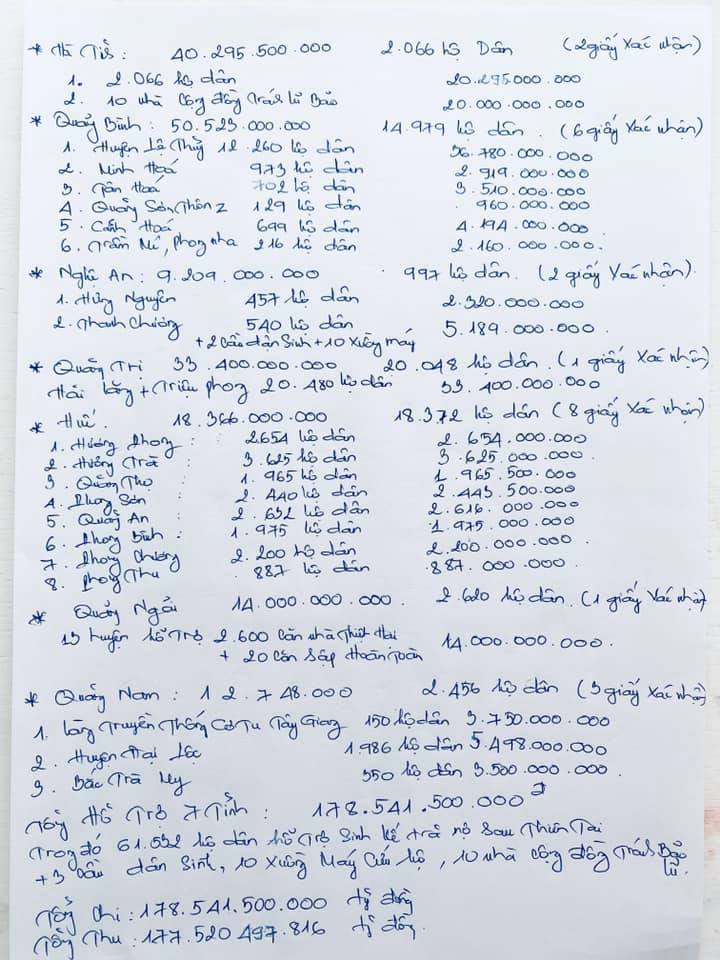 * Hà Tĩnh : 40.295.500.000 2.066 hộ Dân (2 giấy Xác nhận)
1. 2.066 hộ dân 20.295000.000
2. 10 nhà Cộng đồng Tránh lũ Bão 20.000.000.000
* Quảng Bình : 50.523.000.000 14.979 hộ dân . (6 giấy Xác nhận)
1. Huyện Lệ Thủy 12.260 hộ dân 36.780.000.000
2. Minh Hoá 973 hộ dân 2.919.000.000
3. Tân Hoá 702 hộ dân 3.510.000.000
4. Quảng Sơn, Thôn 2 129 hộ dân 960.000.000
5. Cảnh Hoá 699 hộ dân 4.194.000.000
6. Trầm Mé, phong nha 216 hộ dân 2.160.000.000.
* Nghệ An : 9.209.000.000 997 hộ dân. (2 giấy Xác nhận).
1. Hưng Nguyên 457 hộ dân 2.320.000.000
2. Thanh Chương 540 hộ dân 5.189.000.000.
+ 2 Cầu dân Sinh + 10 Xuồng máy
* Quảng Trị 33.400.000.000 20.048 hộ dân. (1 giấy Xác nhận)
Hải lăng + Triệu phong 20.480 hộ dân 33.400.000.000
* Huế. 18.366.000.000 18.372 hộ dân (8 giấy Xác nhận)
1. Hương Phong : 2.654 hộ dân 2.654.000.000
2. Hương Trà : 3.625 hộ dân 3.625.000.000
3. Quảng Thọ : 1.965 hộ dân 1.965.500.000
4. Phong Sơn : 2.440 hộ dân 2.443.500.000
5. Quảng An : 2.632 hộ dân 2.616.000.000
6. Phong Bình : 1.975 hộ dân 1.975.000.000
7. Phong Chương 2.200 hộ dân 2.200.000.000
8. Phong Thu 887 hộ dân 887.000.000
* Quảng Ngãi 14.000.000.000. 2.620 hộ dân. (1 giấy Xác nhận)
13 huyện hỗ Trợ 2.600 Căn nhà Thiệt Hại 14.000.000.000.
+ 20 Căn Sập Hoàn Toàn
* Quảng Nam : 12.748.000 2.456 hộ dân (3 giấy Xác nhận)
1. làng Truyền Thống Cơ Tu Tây Giang 150 hộ dân 3.750.000.000
2. Huyện Đại Lộc 1.986 hộ dân 5.498.000.000
3. Bắc Trà My 350 hộ dân 3.500.000.000.
Tổng Hỗ Trợ 7 Tỉnh : 178.541.500.000
Trong đó 61.532 hộ dân hỗ Trợ Sinh Kế trả nợ Sau Thiên Tai
+ 3 Cầu dân Sinh, 10 Xuồng Máy Cứu hộ, 10 nhà Cộng đồng Tránh Bão lũ.
Tổng Chi : 178.541.500.000 tỷ đồng
Tổng Thu : 177.520 497.816 tỷ đồng.